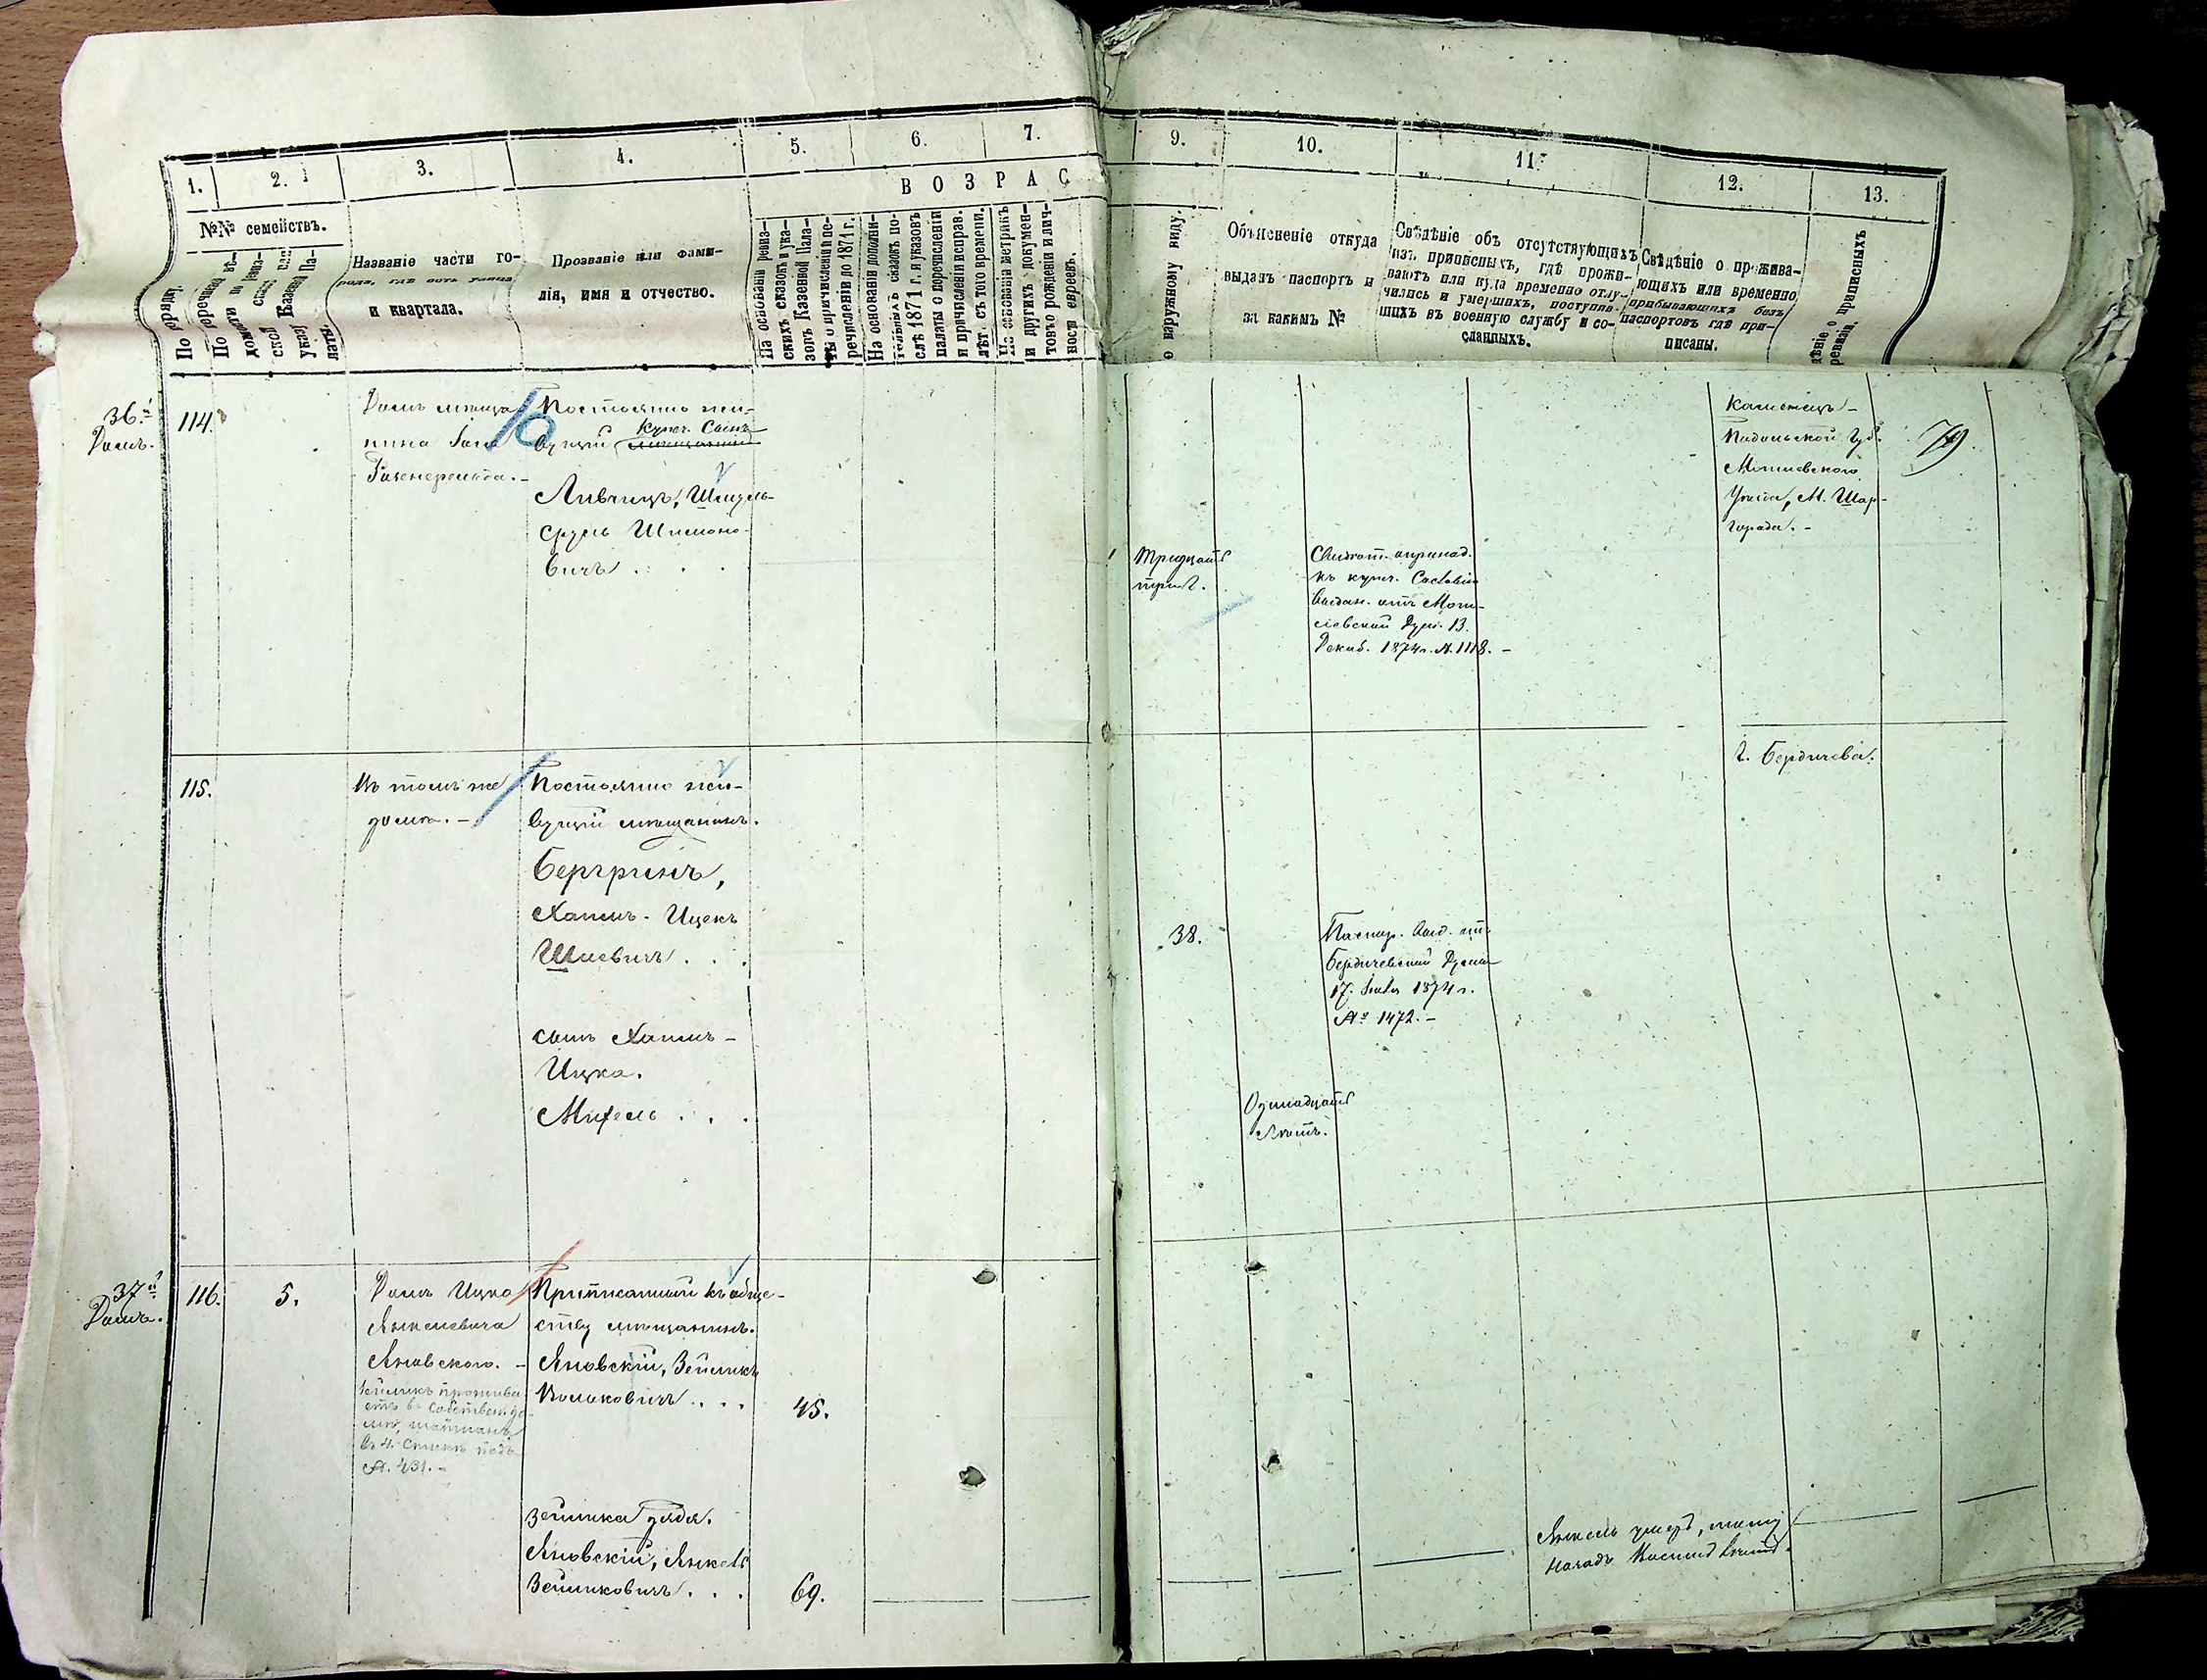 1.
2.
3.
4.
5.
6.
7.
№№ семействъ.
По порядку.
Названіе части го-
рода, гдѣ есть улица
и квартала.
Прозваніе или фами-
лія, имя и отчество.
В О З Р А С
На основаніи ревиз-
скихъ сказокъ и ука-
зовъ Казенной Пала-
ты о причисленіи и пе-
речисленіи до 1871 г.
На основаніи дополни-
тельныхъ сказокъ по-
слѣ 1871 г. и указовъ
палаты о перечисленіи
и причисленіи исправ.
лѣт. съ того времени.
На основаніи метрикъ
и другихъ докумен-
товъ о рожденіи и лич-
ности евреевъ.
9.
10.
11.
12.
13.
о наружному виду.
Объясненіе откуда
выданъ паспортъ и
за какимъ №
Свѣдѣніе объ отсутствующихъ
изъ приписныхъ, гдѣ прожи-
ваютъ или куда временно отлу-
чились и умершихъ, поступив-
шихъ въ военную службу и со-
сланныхъ.
Свѣдѣніе о прожива-
ющихъ или временно
прибывающихъ безъ
паспортовъ гдѣ при-
писаны.
дѣніе о приписныхъ
36.й
Домъ.
114.
Домъ мѣща
нина
Постоянно жи-
вущій Купеч. Сынъ
Лившицъ, Шмуль-
Сруль Шимоно-
вичъ . . .
Тридцать
три.
къ купеч. Сословію
выдан. отъ Моги-
левской Думы 13.
Декаб. 1874 г. №. 1118. -
Каменецъ-
Подольской Губ.
Могилевского
Уѣзда, М. Шар-
города. -
79.
115.
Въ томъ же
домѣ. -
Постоянно жи-
вущій мѣщанинъ.
Бергринъ,
Хаимъ-Ицекъ
Шаевичъ . . .
38.
Паспор. выд. отъ
Бердичевской Думы
17. 1874 г.
№ 1472. -
г. Бердичева.
сынъ Хаимъ-
Ицка.
Михель . . .
Одинадцать
лѣтъ.
37й
Домъ.
116.
5.
Домъ Ицка
Янкелевича
Яновского. -
Зейликъ прожива
етъ въ Собствен. до-
мѣ,
въ 4. Спискѣ подъ
№. 431. -
Приписанный къ обще-
ству мѣщанинъ.
Яновскій, Зейликъ
Волковичъ . . .
45.
Зейлика дядя.
Яновскій, Янкель
Зейликовичъ . . .
69.
Янкель умеръ, тому
назадъ